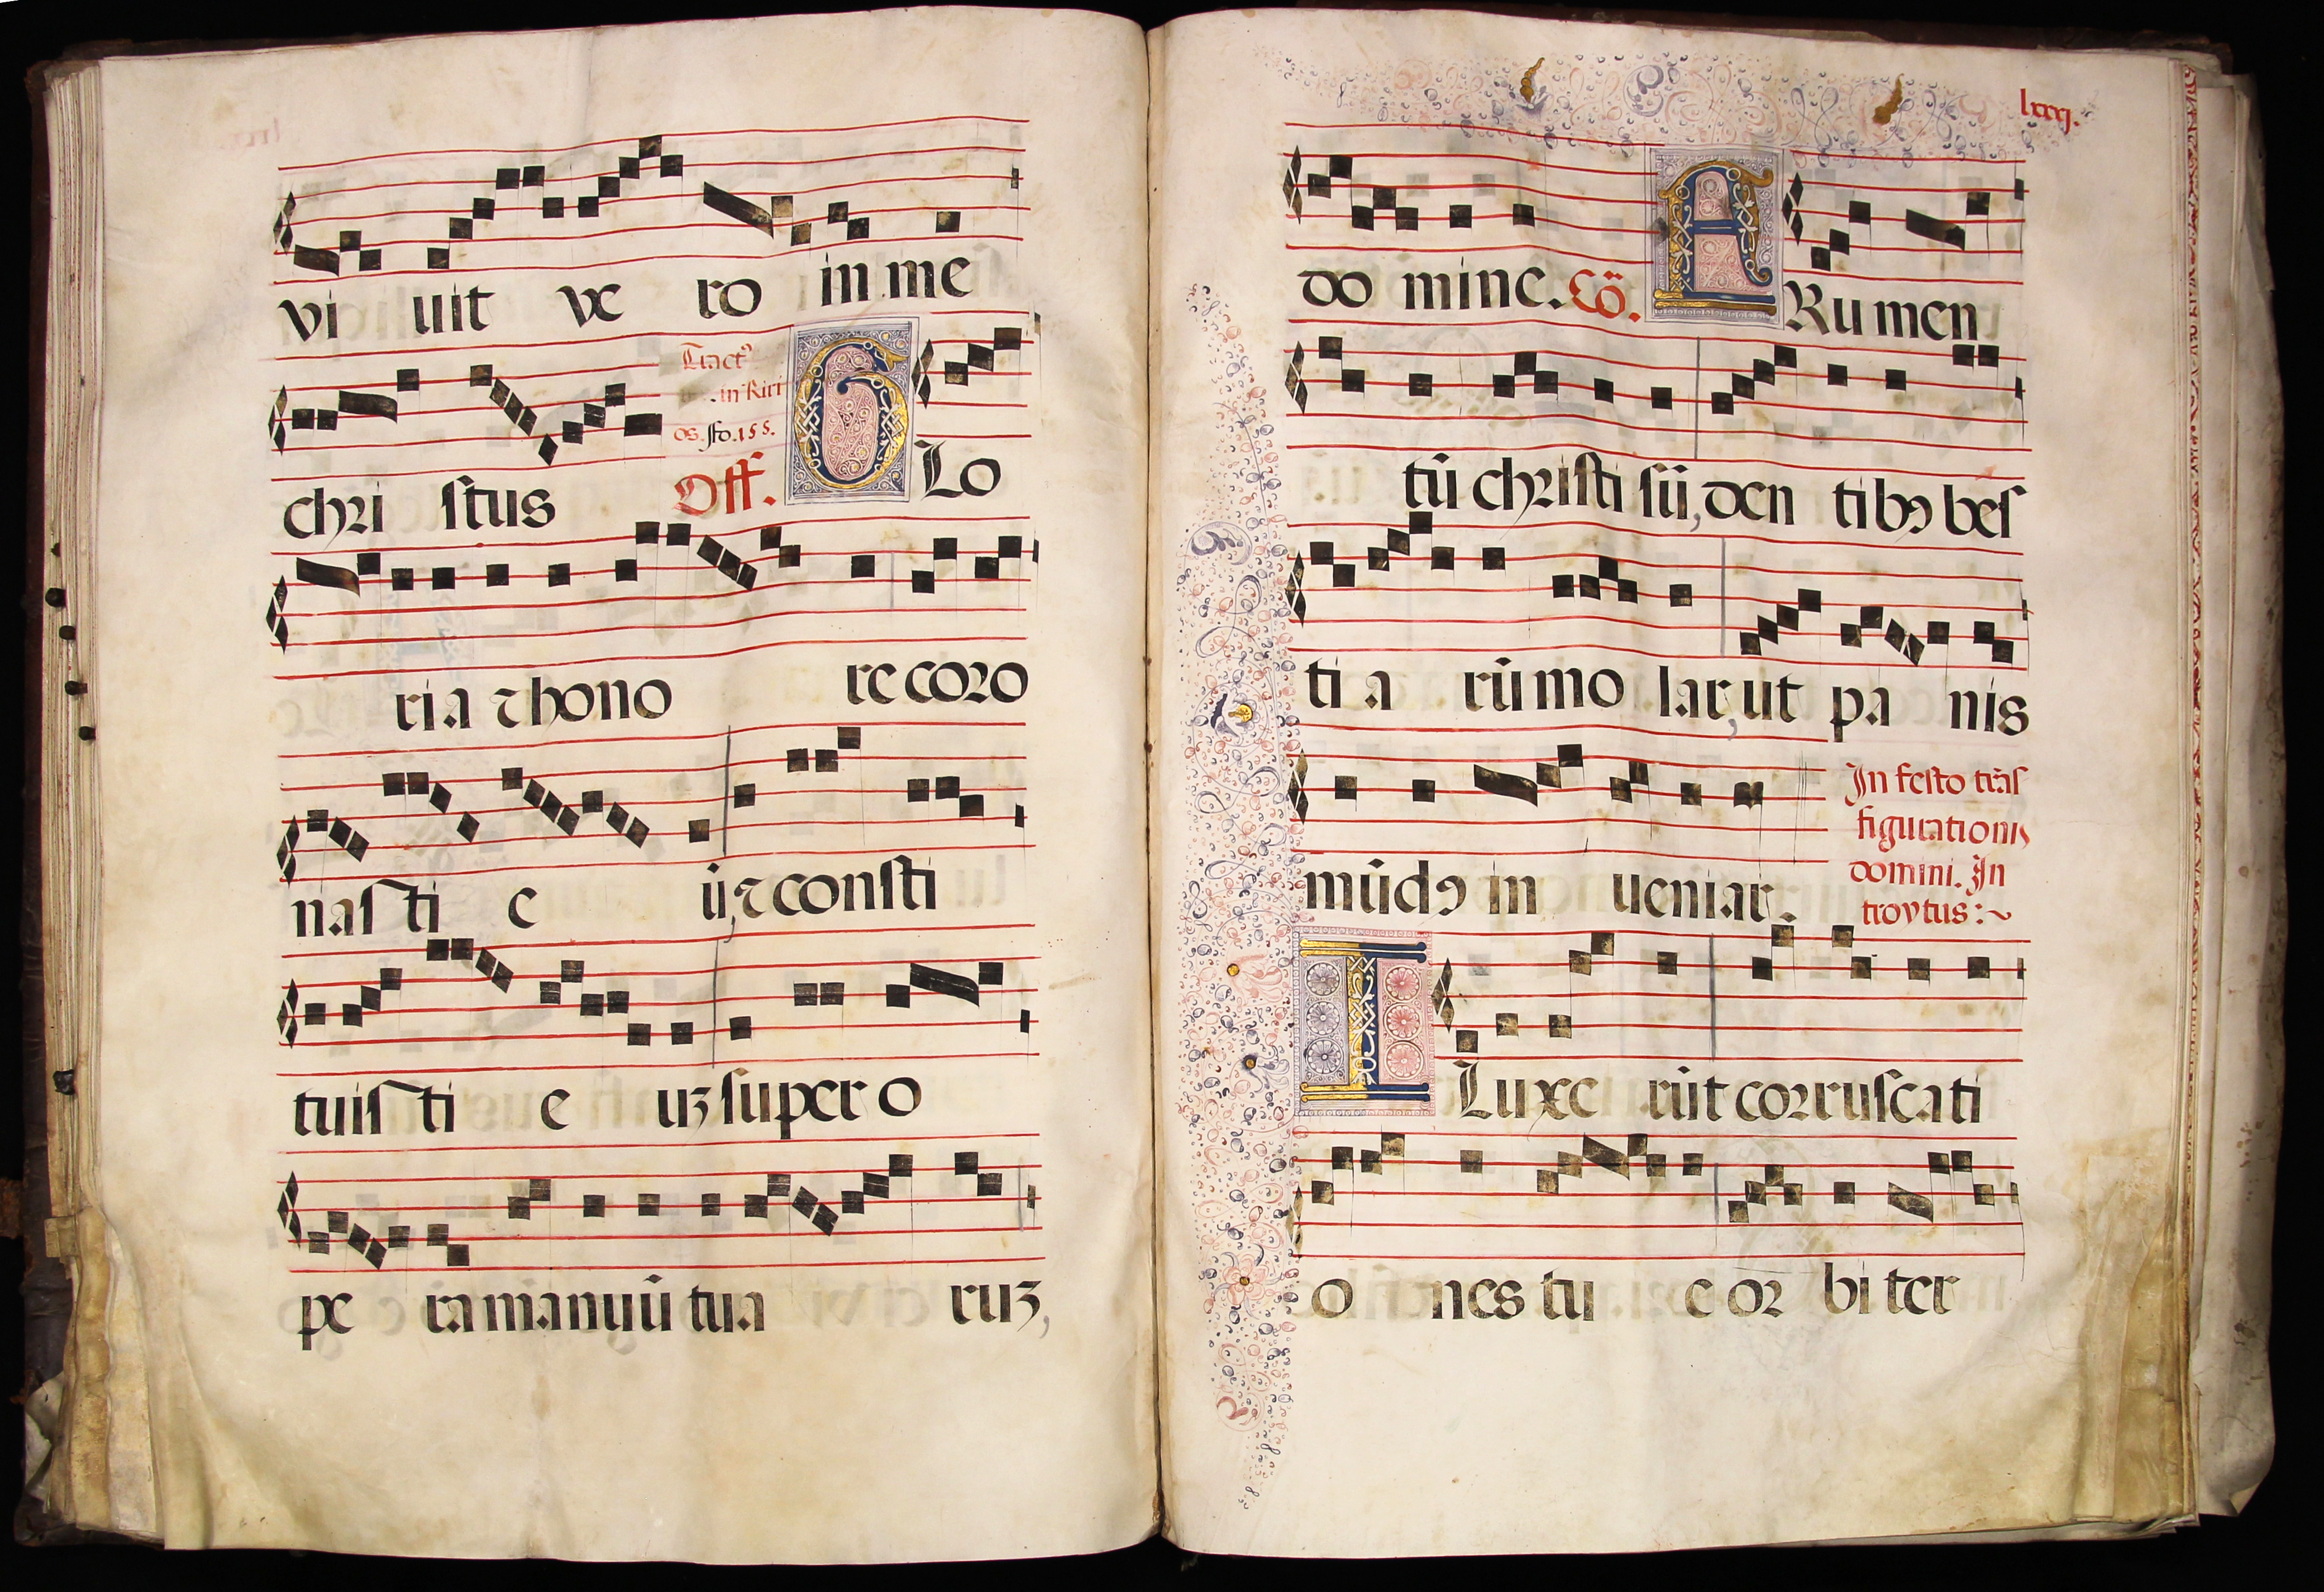 vi uit ve ro in me
Tract9
in Kiri
os. fo. 155.
chri stus Off. G Lo
ria ⁊ hono re coro
nas ti e ū, ⁊ consti
tuis ti e uʒ super o
pe ra manuū tua ruʒ,
lxxxj.
do mine. Cō. A Ru men
tū christi sū, den tibꝯ bes
ti a rū mo lar, ut pa nis
mūdꝯ in ueniar.
In festo trās
figurationis
domini. In
troytus:~
I Luxe rūt corruscati
o nes tu e or bi ter